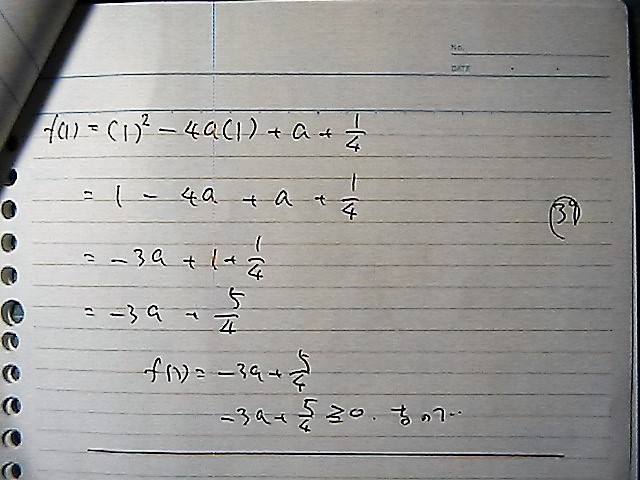 No.
DATE
f(1) = (1)² - 4a(1) + a + 1/4
= 1 - 4a + a + 1/4
39
= -3a + 1 + 1/4
= -3a + 5/4
f(1) = -3a + 5/4
-3a + 5/4 ≧ 0.